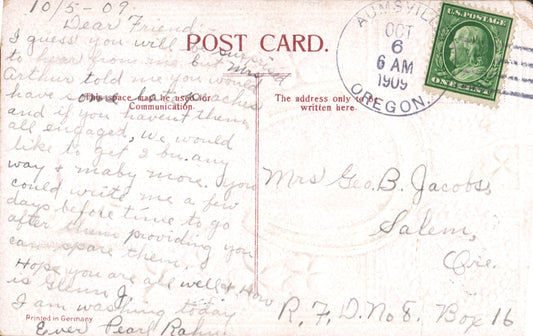 10/5-09.
Dear Friend:
I guess you will be
to hear from me but Mrs
Arthur told me you would
have some late peaches
and if you havent them
all engaged, We would
like to get 1 bu. any
way & maby more. You
could write me a few
days before time to go
after them providing you
can spare them.
Hope you are all well & How
is Glenn J.
I am washing today
Ever Pearl
POST CARD.
This space may be used for
Communication.
The address only to be
written here.
Printed in Germany
AUMSVILLE
OCT
6
6 AM
1909
OREGON.
U.S. POSTAGE
ONE CENT
Mrs Geo. B. Jacobs,
Salem,
Ore.
R. F. D. No 8. Box 16